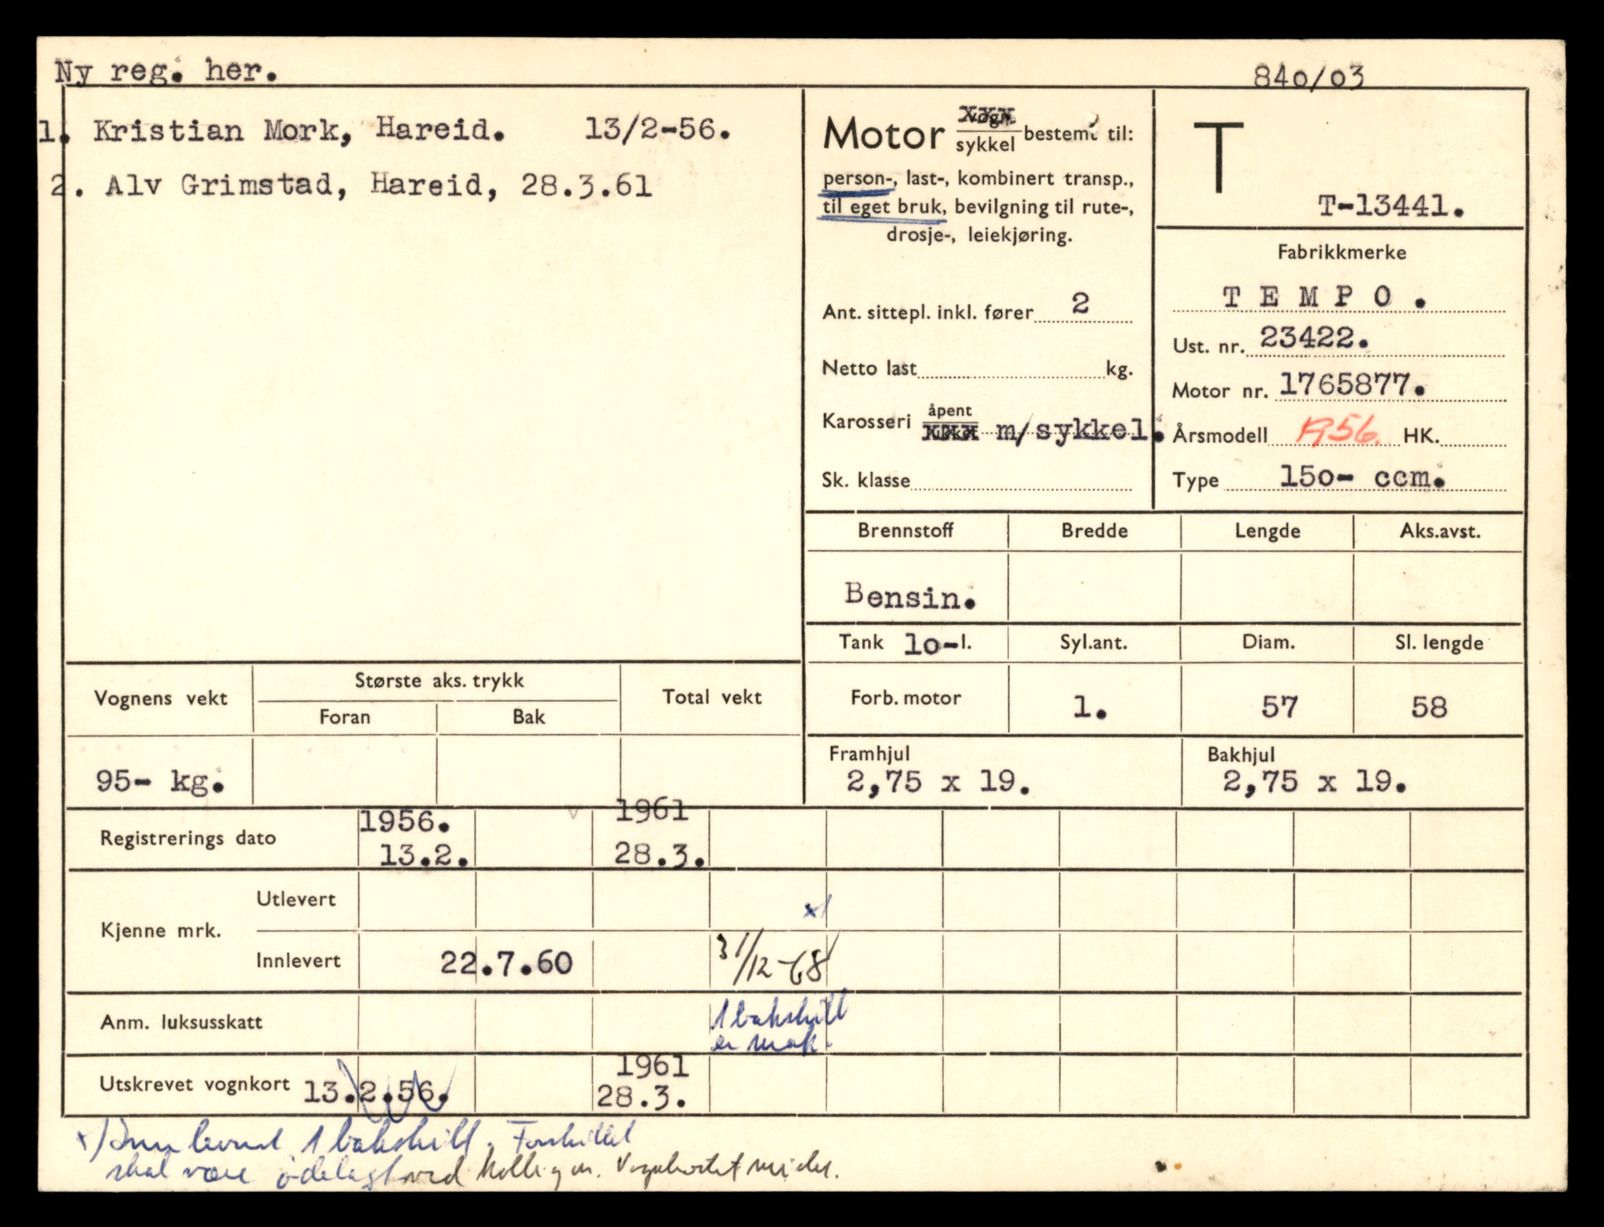 Ny reg. her.
840/03
1. Kristian Mork, Hareid. 13/2-56.
2. Alv Grimstad, Hareid, 28.3.61
Motor vogn sykkel bestemt til:
person-, last-, kombinert transp.,
til eget bruk, bevilgning til rute-,
drosje-, leiekjøring.
Ant. sittepl. inkl. fører 2
Netto last kg.
Karosseri åpent lukket m/sykkel.
Sk. klasse
T
T-13441.
Fabrikkmerke
TEMPO.
Ust. nr. 23422.
Motor nr. 1765877.
Årsmodell 1956. HK.
Type 150- ccm.
Brennstoff Bredde Lengde Aks.avst.
Bensin.
Tank 10-l. Syl.ant. Diam. Sl. lengde
Forb. motor 1. 57 58
Framhjul Bakhjul
2,75 x 19. 2,75 x 19.
Vognens vekt Største aks. trykk Total vekt
Foran Bak
95- kg.
Registrerings dato 1956. 13.2. 1961 28.3.
Kjenne mrk. Utlevert x)
Innlevert 22.7.60 31/12-68
Anm. luksusskatt 1 bakskilt
er mak.
Utskrevet vognkort 13.2.56. 1961 28.3.
x) Innlevert 1 bakskilt. Forskiltet
skal være ødelagt ved kollisjon. Vognkortet